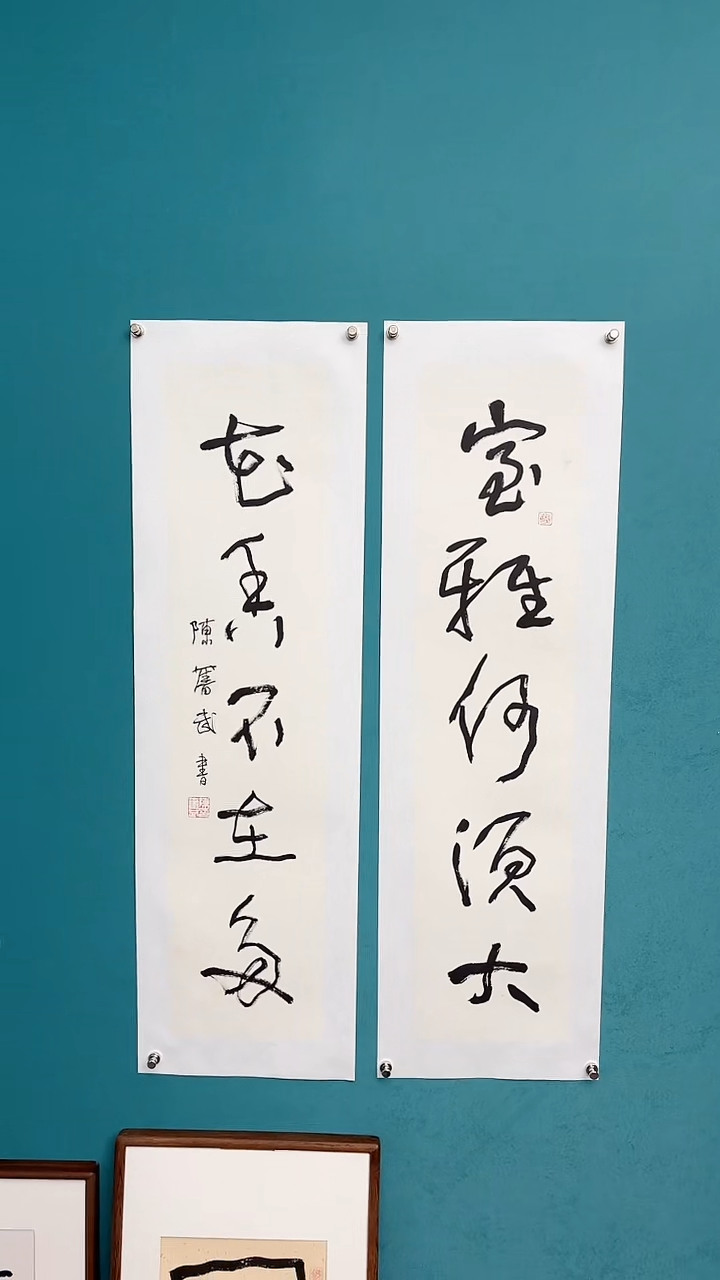 室雅何須大
花香不在多
陳蕃武書